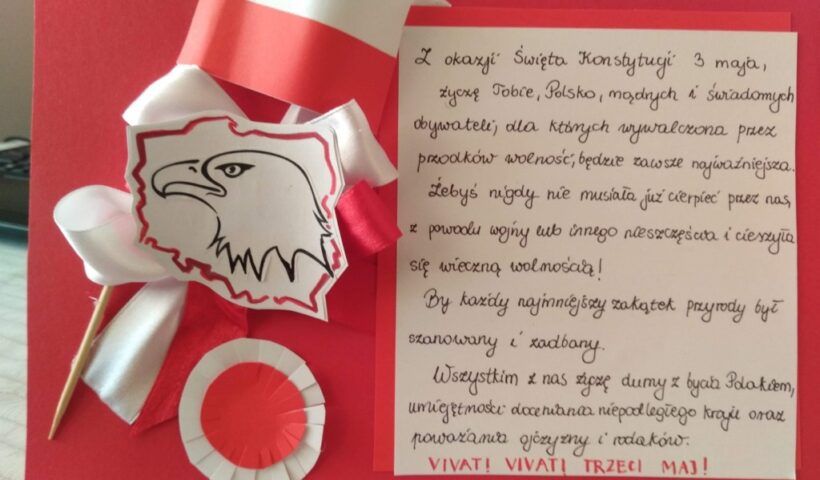 Z okazji Święta Konstytucji 3 maja,
życzę Tobie, Polsko, mądrych i świadomych
obywateli, dla których wywalczona przez
przodków wolność, będzie zawsze najważniejsza.
Żebyś nigdy nie musiała już cierpieć przez nas,
z powodu wojny lub innego nieszczęścia i cieszyła
się wieczną wolnością!
By każdy najmniejszy zakątek przyrody był
szanowany i zadbany.
Wszystkim z nas życzę dumy z bycia Polakiem,
umiejętności doceniania niepodległego kraju oraz
poważania ojczyzny i rodaków.
VIVAT! VIVAT! TRZECI MAJ!